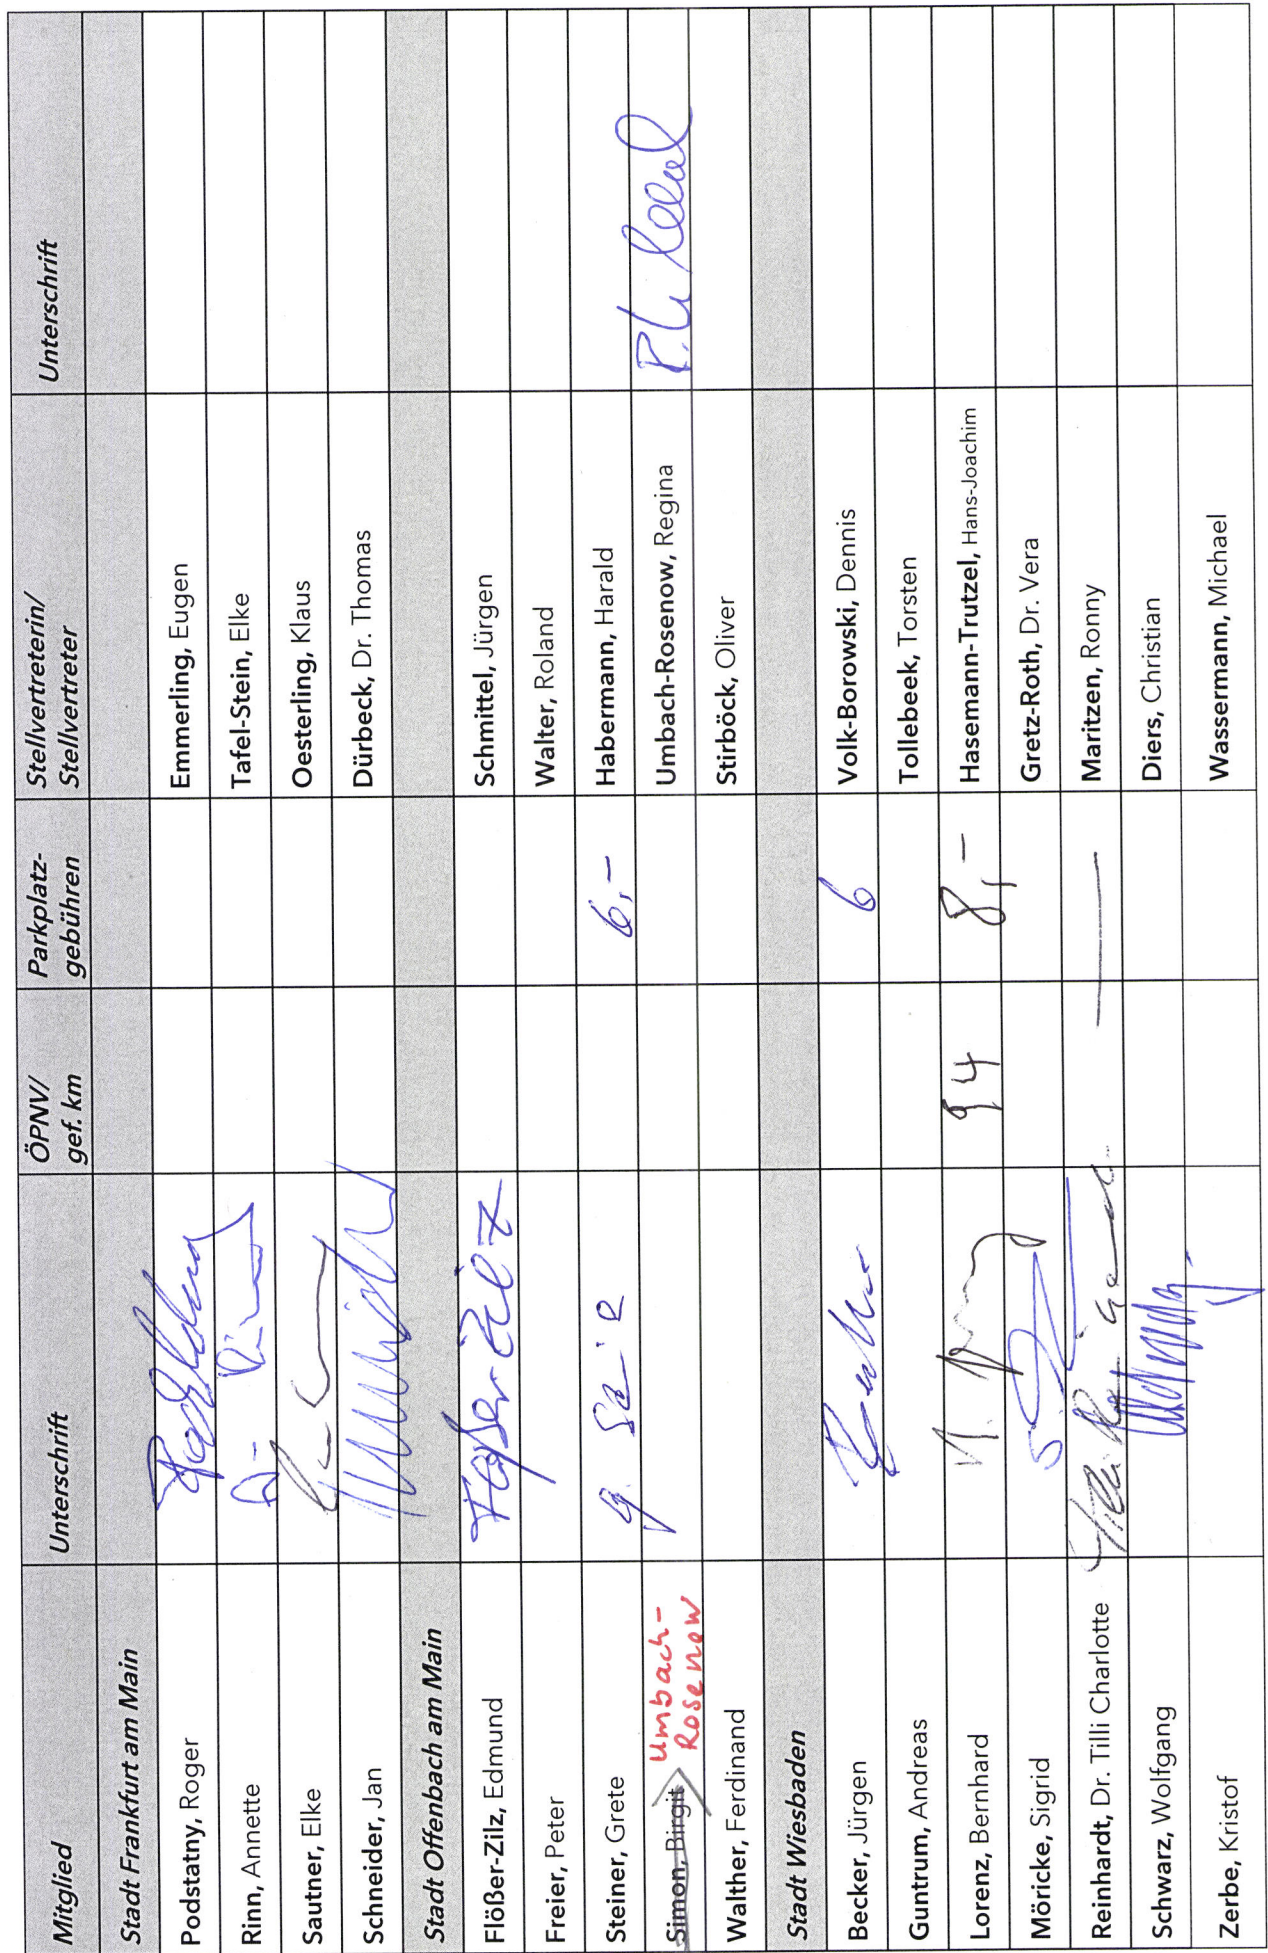 Mitglied Unterschrift ÖPNV/ gef. km Parkplatz- gebühren Stellvertreterin/ Stellvertreter Unterschrift
Stadt Frankfurt am Main
Podstatny, Roger Emmerling, Eugen
Rinn, Annette Tafel-Stein, Elke
Sautner, Elke Oesterling, Klaus
Schneider, Jan Dürbeck, Dr. Thomas
Stadt Offenbach am Main
Flößer-Zilz, Edmund Flößer-Zilz Schmittel, Jürgen
Freier, Peter Walter, Roland
Steiner, Grete 6,– Habermann, Harald
Simon, Birgit Umbach- Rosenow Umbach-Rosenow, Regina
Walther, Ferdinand Stirböck, Oliver
Stadt Wiesbaden
Becker, Jürgen 6 Volk-Borowski, Dennis
Guntrum, Andreas Tollebeek, Torsten
Lorenz, Bernhard 94 8,– Hasemann-Trutzel, Hans-Joachim
Möricke, Sigrid Gretz-Roth, Dr. Vera
Reinhardt, Dr. Tilli Charlotte Maritzen, Ronny
Schwarz, Wolfgang Diers, Christian
Zerbe, Kristof Wassermann, Michael